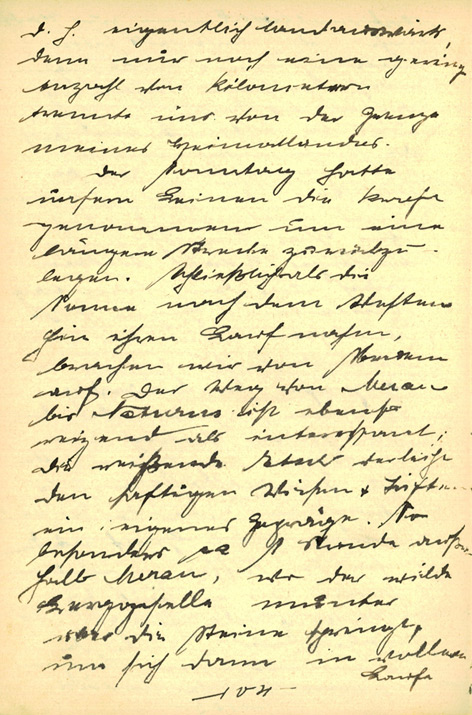 d. h. eigentlich landauswärts,
denn nur noch eine gering
Anzahl von Kilometern
trennte uns von der Grenze
meines Heimatlandes.
Der Sonntag hatte
unsern Beinen die Kraft
genommen um eine
längere Strecke zurückzu-
legen. Schließlich als die
Sonne nach dem Westen
hin ihren Lauf nahm,
brachen wir von Meran
auf. Der Weg von Meran
bis Naturns ist ebenso
reizend als interessant;
die reißende Etsch verleiht
den saftigen Wiesen &
ein eigenes Gepräge. So
besonders ca Stunde außer-
halb Meran, wo der wilde
Berggeselle munter
über die Steine springt,
um sich dann in vollem
Laufe
- 104 -